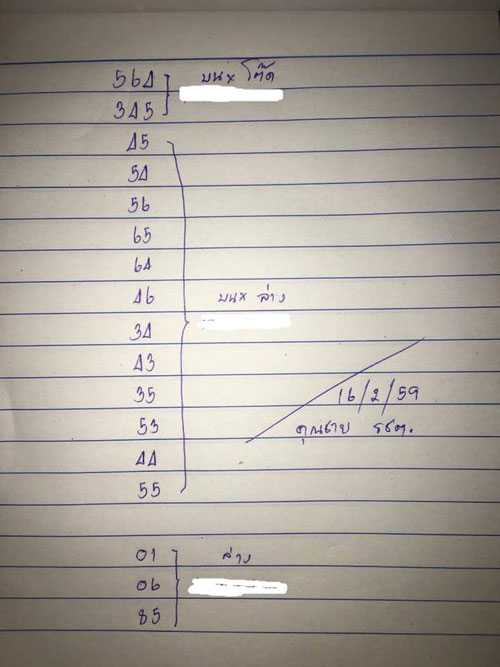 564 } บน x โต๊ด
345
45
54
56
65
64
46 } บน x ล่าง
34
43
35 16/2/59
53 คุณชาย รชต.
44
55
01 ล่าง
06 }
85